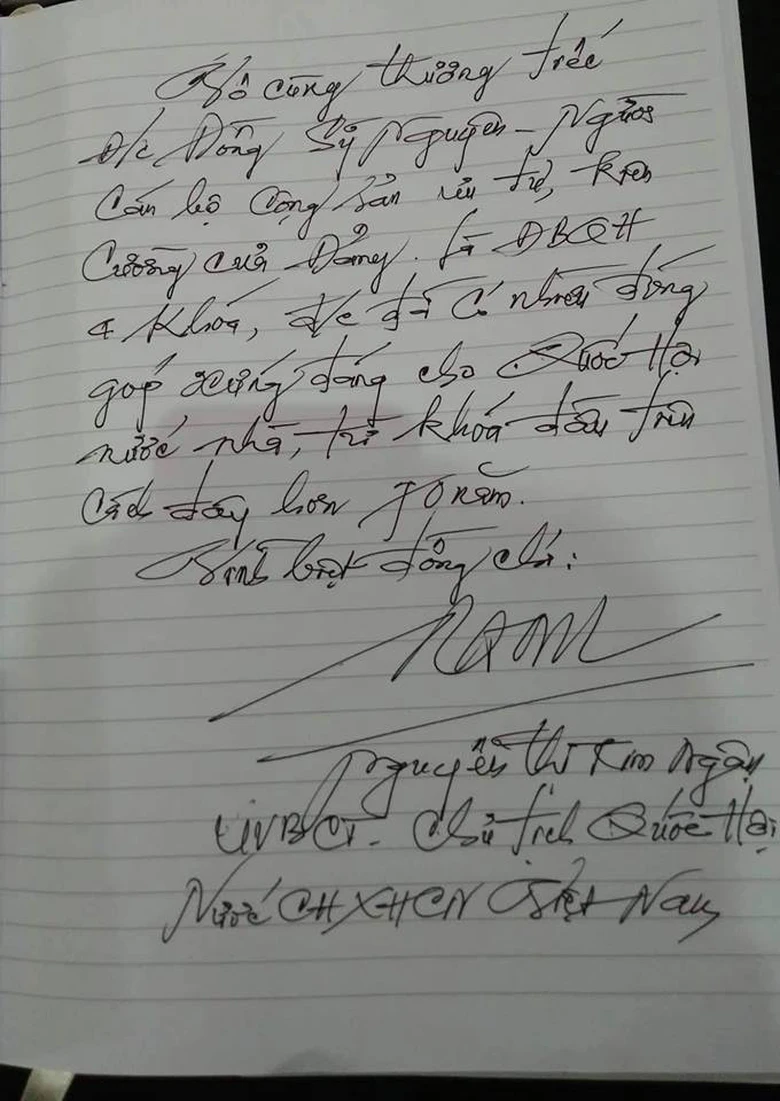 Vô cùng thương tiếc
Đ/c Đồng Sỹ Nguyên - Người
Cán bộ Cộng sản ưu tú, kiên
Cường của Đảng. Là ĐBQH
4 khóa, đ/c đã có nhiều đóng
góp xứng đáng cho Quốc Hội
nước nhà, từ khóa đầu tiên
Cách đây hơn 70 năm.
Vĩnh biệt đồng chí!
Nguyễn Thị Kim Ngân
UVBCT. Chủ tịch Quốc Hội
Nước CHXHCN Việt Nam